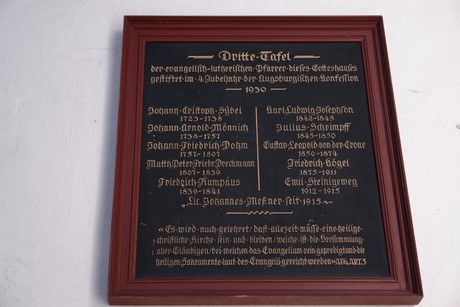 Dritte-Tafel
der-evangelisch-lutherischen-Pfarrer-dieses-Gotteshauses
gestiftet-im-4.Jubeljahr-der-Augsburgischen-Konfession
1930
Johann-Cristoph-Sybel
1723-1738
Johann-Arnold-Mönnich
1738-1757
Johann-Friedrich-Dohm
1757-1807
Matth:Peter-Friedr:Dreckmann
1807-1839
Friedrich-Rumpäus
1839-1841
Karl-Ludwig-Josephson
1842-1845
Julius-Schrimpff
1845-1850
Gustav-Leopold-von-der-Crone
1850-1874
Friedrich-Kögel
1875-1911
Emil-Steinigeweg
1912-1915
Lic.Johannes-Meßner-seit-1915
«Es-wird-auch-gelehret/daß-allezeit-müsse-eine-heilige-
christliche-Kirche-sein-und-bleiben/welche-ist-die-Versammlung-
aller-Gläubigen/bei-welchen-das-Evangelium-rein-gepredigt-und-die
heiligen-Sakramente-laut-des-Evangelii-gereicht-werden»AUG.ART.7